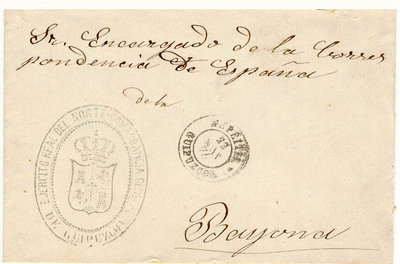 Sr. Encargado de la Corres
pondencia de España
de la
EJERCITO REAL DEL NORTE
DE GUIPUZCOA
AZPEITIA
23
GUIPUZCOA
Bayona